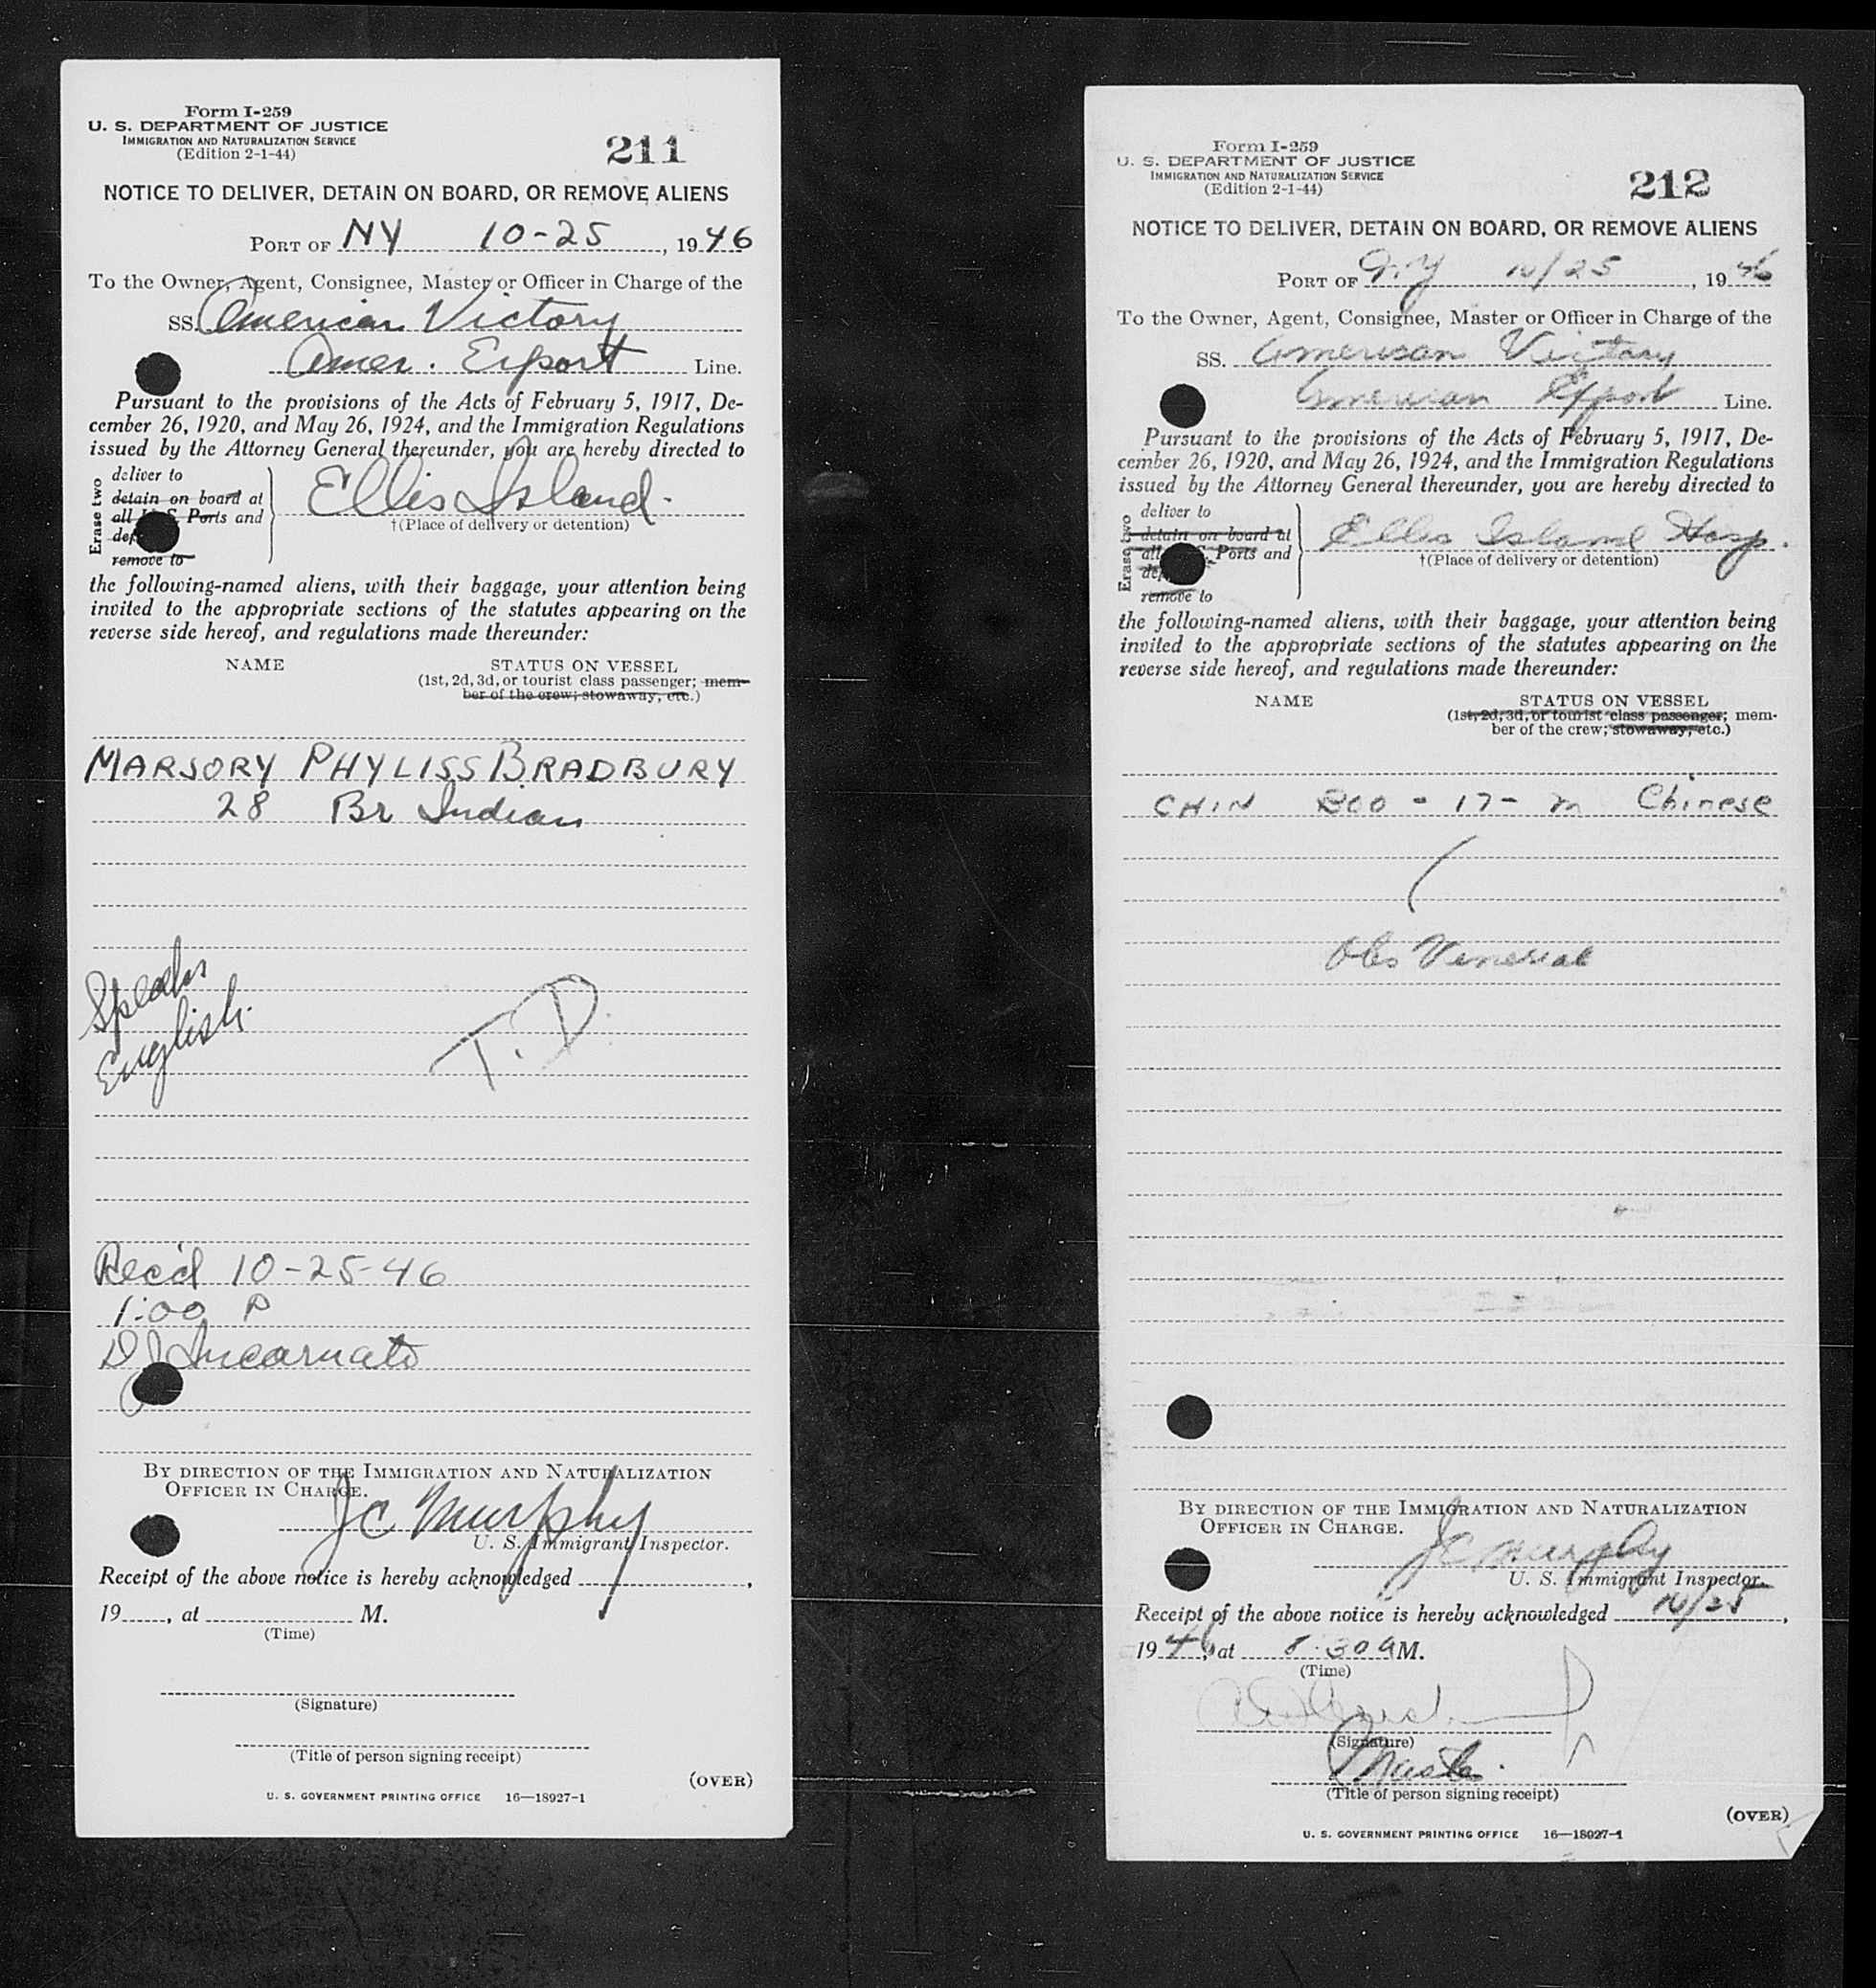 Form I-259
U. S. DEPARTMENT OF JUSTICE
IMMIGRATION AND NATURALIZATION SERVICE
(Edition 2-1-44)
211
NOTICE TO DELIVER, DETAIN ON BOARD, OR REMOVE ALIENS
PORT OF NY 10-25, 1946
To the Owner, Agent, Consignee, Master or Officer in Charge of the
SS. American Victory
Amer. Export Line.
Pursuant to the provisions of the Acts of February 5, 1917, De-
cember 26, 1920, and May 26, 1924, and the Immigration Regulations
issued by the Attorney General thereunder, you are hereby directed to
Erase two
deliver to
detain on board at
all U. S. Ports and
remove to
Ellis Island.
†(Place of delivery or detention)
the following-named aliens, with their baggage, your attention being
invited to the appropriate sections of the statutes appearing on the
reverse side hereof, and regulations made thereunder:
NAME STATUS ON VESSEL
(1st, 2d, 3d, or tourist class passenger; mem-
ber of the crew; stowaway, etc.)
MARJORY PHYLISS BRADBURY
28 Br Indian
Speaks
English.
T. D.
Rec'd 10-25-46
1:00 P
D J Incarnato
BY DIRECTION OF THE IMMIGRATION AND NATURALIZATION
OFFICER IN CHARGE.
JC Murphy
U. S. Immigrant Inspector.
Receipt of the above notice is hereby acknowledged ,
19 , at M.
(Time)
(Signature)
(Title of person signing receipt)
(OVER)
U. S. GOVERNMENT PRINTING OFFICE 16—18927-1
Form I-259
U. S. DEPARTMENT OF JUSTICE
IMMIGRATION AND NATURALIZATION SERVICE
(Edition 2-1-44)
212
NOTICE TO DELIVER, DETAIN ON BOARD, OR REMOVE ALIENS
PORT OF NY 10/25, 1946
To the Owner, Agent, Consignee, Master or Officer in Charge of the
SS. American Victory
American Export Line.
Pursuant to the provisions of the Acts of February 5, 1917, De-
cember 26, 1920, and May 26, 1924, and the Immigration Regulations
issued by the Attorney General thereunder, you are hereby directed to
Erase two
deliver to
detain on board at
all U. S. Ports and
remove to
Ellis Island Hosp.
†(Place of delivery or detention)
the following-named aliens, with their baggage, your attention being
invited to the appropriate sections of the statutes appearing on the
reverse side hereof, and regulations made thereunder:
NAME STATUS ON VESSEL
(1st, 2d, 3d, or tourist class passenger; mem-
ber of the crew; stowaway, etc.)
CHIN - 17 - m Chinese
Obs Venereal
BY DIRECTION OF THE IMMIGRATION AND NATURALIZATION
OFFICER IN CHARGE.
JC Murphy
U. S. Immigrant Inspector.
Receipt of the above notice is hereby acknowledged 10/25,
1946, at 8:30 AM.
(Time)
(Signature)
Master.
(Title of person signing receipt)
(OVER)
U. S. GOVERNMENT PRINTING OFFICE 16—18927-1